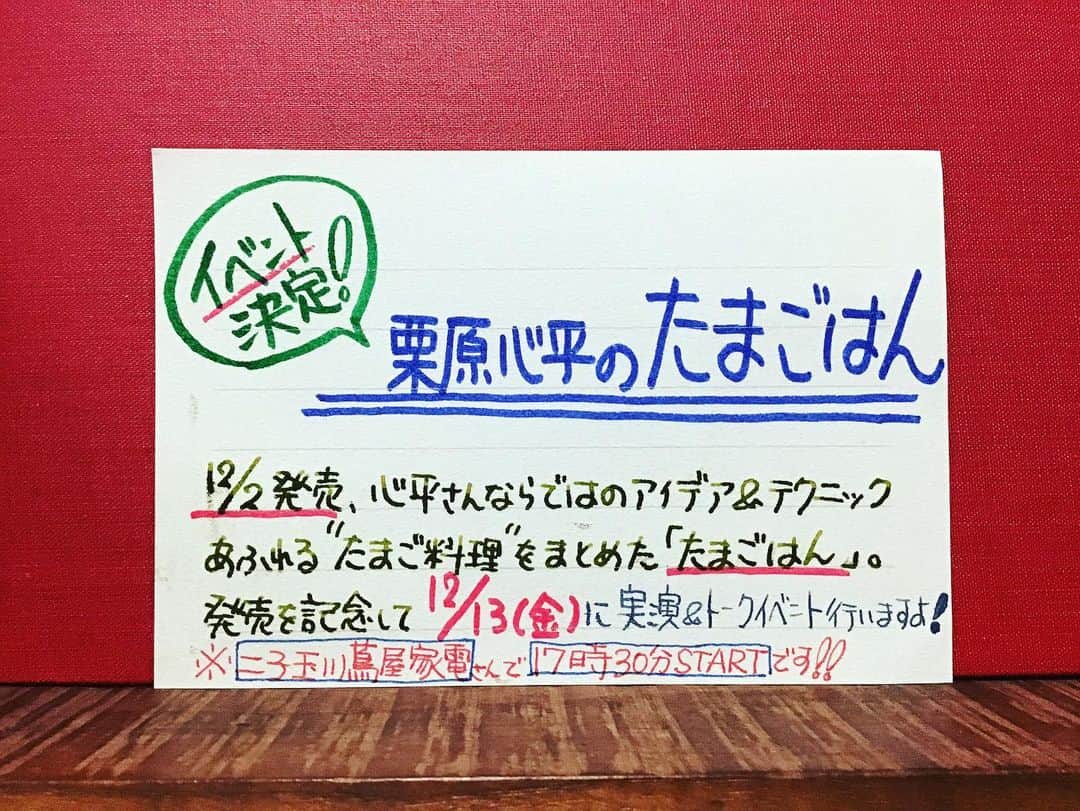 イベント
決定!!
栗原心平のたまごはん
12/2発売、心平さんならではのアイデア&テクニック
あふれる"たまご料理"をまとめた「たまごはん」。
発売を記念して12/13(金)に実演&トークイベント行いますよ!
※二子玉川蔦屋家電さんで17時30分STARTです!!